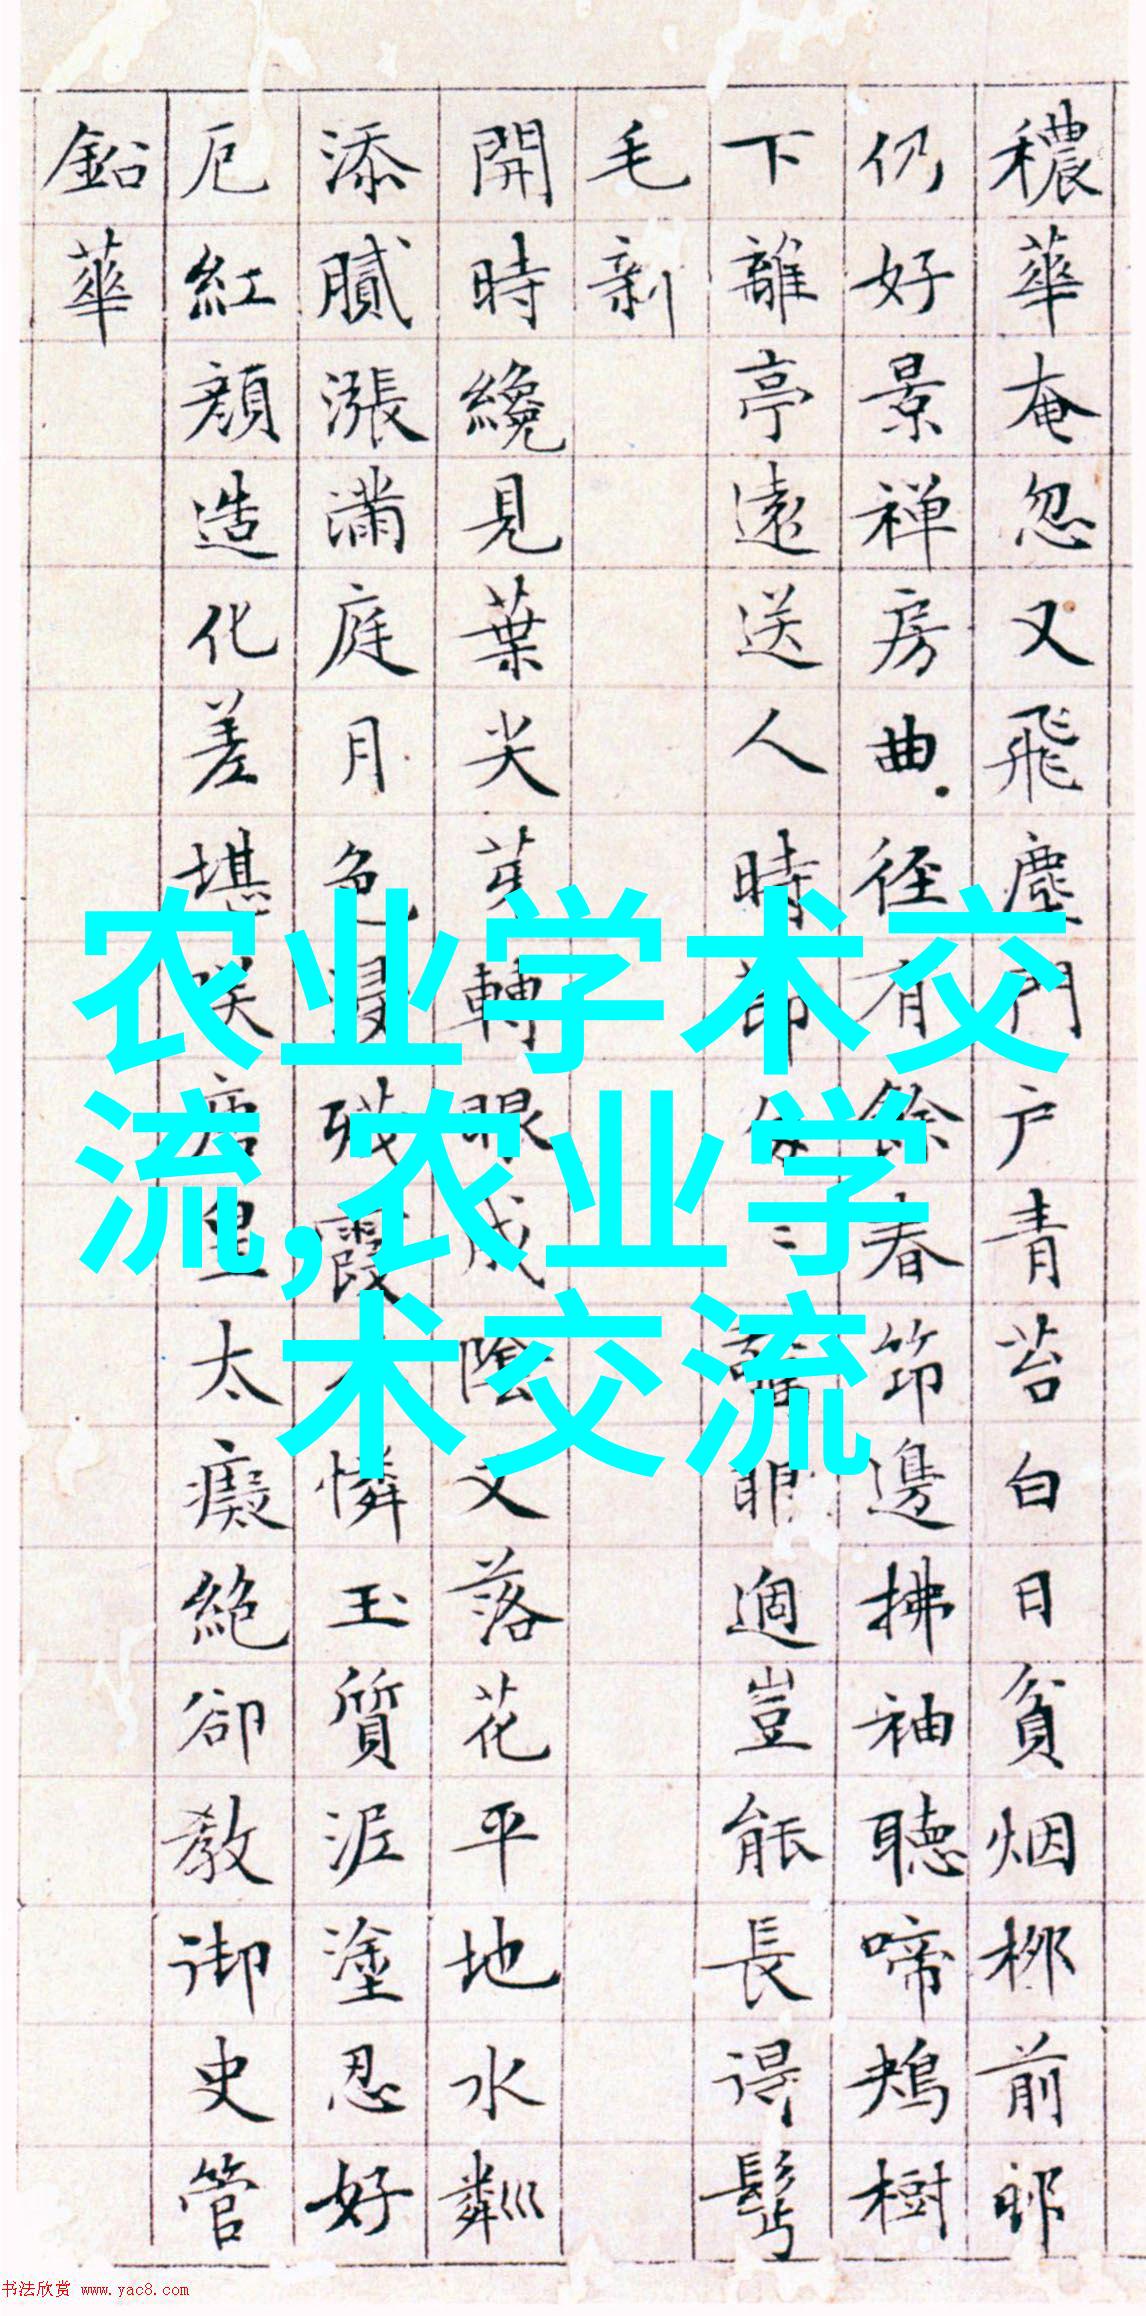 穠華奄忽又飛塵門戶青苔白日貧烟柳前郎
仍好景禅房曲径有餘春筇邊拂袖聽啼鴂樹
下離亭遠送人時節 適豈能長得髩
毛新
開時纔見葉尖芽轉眼成陰又落花平地水粼巛
添膩漲滿庭月色浸殘霞 憐玉質泥塗忍好
卮紅顔造化差堪咲唐皇太癡絕卻教御史管
鉛華
农业学术交
流,农业学
术交流
书法欣赏 www.yac8.com